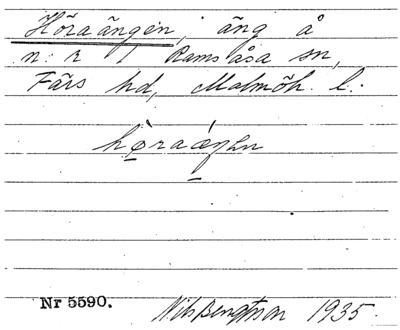 Höraängen, äng å
n:r 1 Ramsåsa sn,
Färs hd, Malmöh. l.
Nr 5590.
Nils Bengtson 1935.